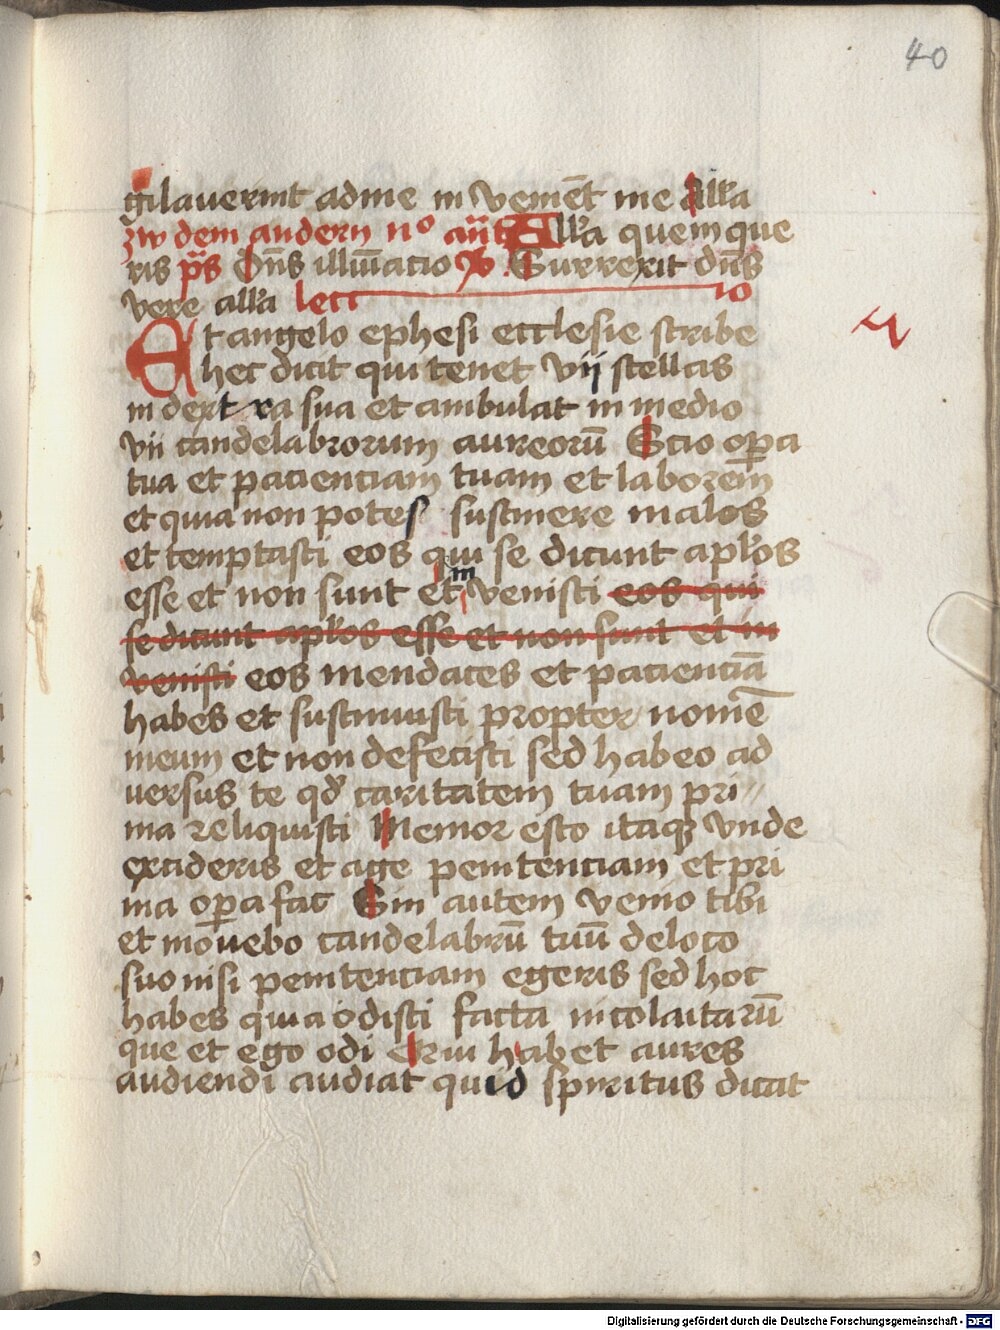 40
gilaverint ad me in veniēt me Alla
zw dem andern n° añt Alla quem que
ris ps Dn̄s illūiacio ℣. Surrexit dn̄s
vere alla lectio
Et angelo ephesi ecclesie scribe
hec dicit qui tenet vij stellas
in dextra sua et ambulat in medio
vii candelabrorum aureorū Scio opera
tua et pacienciam tuam et laborem
et quia non potes sustinere malos
et temptasti eos qui se dicunt aplos
esse et non sunt et in venisti eos qui
se dicunt aplos esse et non sunt et in
venisti eos mendaces et pacienciā
habes et sustinuisti propter nomē
meum et non defecisti sed habeo ad
uersus te qd caritatem tuam pri
ma reliquisti Memor esto itaqꝫ vnde
excideris et age penitenciam et pri
ma opera fac Sin autem venio tibi
et mouebo candelabrū tuū de loco
suo nisi penitenciam egeris sed hoc
habes quia odisti facta nicolaitarū
que et ego odi Qui habet aures
audiendi audiat quid spiritus dicat
Digitalisierung gefördert durch die Deutsche Forschungsgemeinschaft - DFG